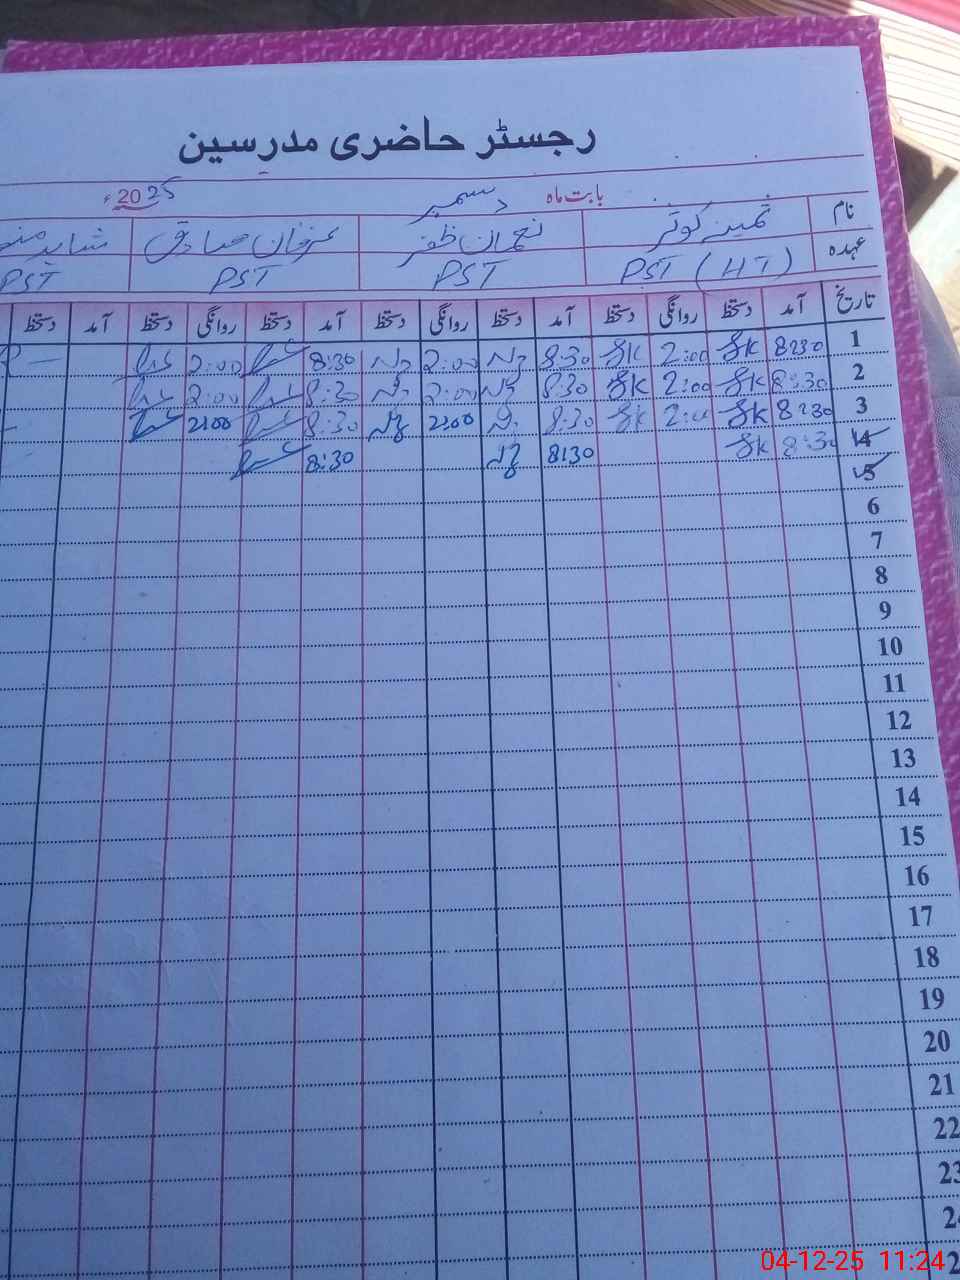 رجسٹر حاضری مدرسین
بابت ماہ دسمبر 2025ء
نام ثمینہ کوثر نعمان ظفر عرفان صادق شاہد
عہدہ PST (HT) PST PST PST
تاریخ آمد دستخط روانگی دستخط آمد دستخط روانگی دستخط آمد دستخط روانگی دستخط آمد دستخط
1 8:30 SK 2:00 SK 8:30 2:00 8:30 2:00
2 8:30 SK 2:00 SK 8:30 2:00 8:30 2:00
3 8:30 SK 2:00 SK 8:30 2:00 8:30 2:00
4 8:30 SK 8:30 8:30
5
6
7
8
9
10
11
12
13
14
15
16
17
18
19
20
21
22
23
04-12-25 11:24